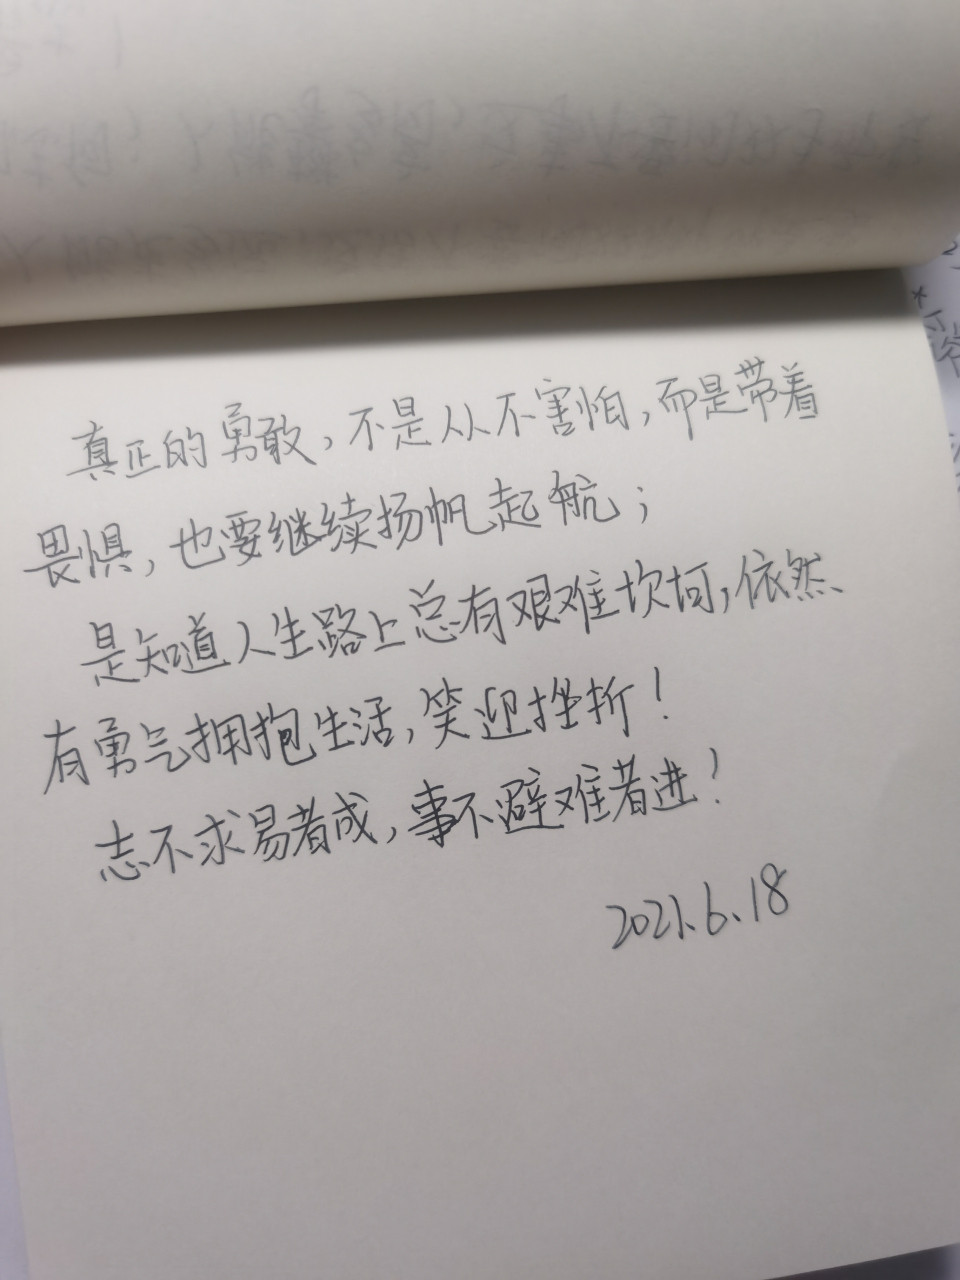 真正的勇敢，不是从不害怕，而是带着
畏惧，也要继续扬帆起航；
是知道人生路上总有艰难坎坷，依然
有勇气拥抱生活，笑迎挫折！
志不求易者成，事不避难者进！
2021.6.18